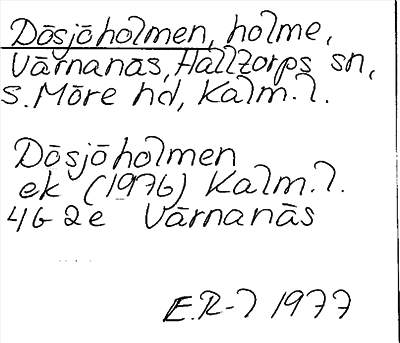 Dösjöholmen, holme,
Värnanäs, Hallzorps sn,
S. Möre hd, Kalm. l.
Dösjöholmen
ek (1976) Kalm. l.
4G 2e Värnanäs
E.R-l 1977